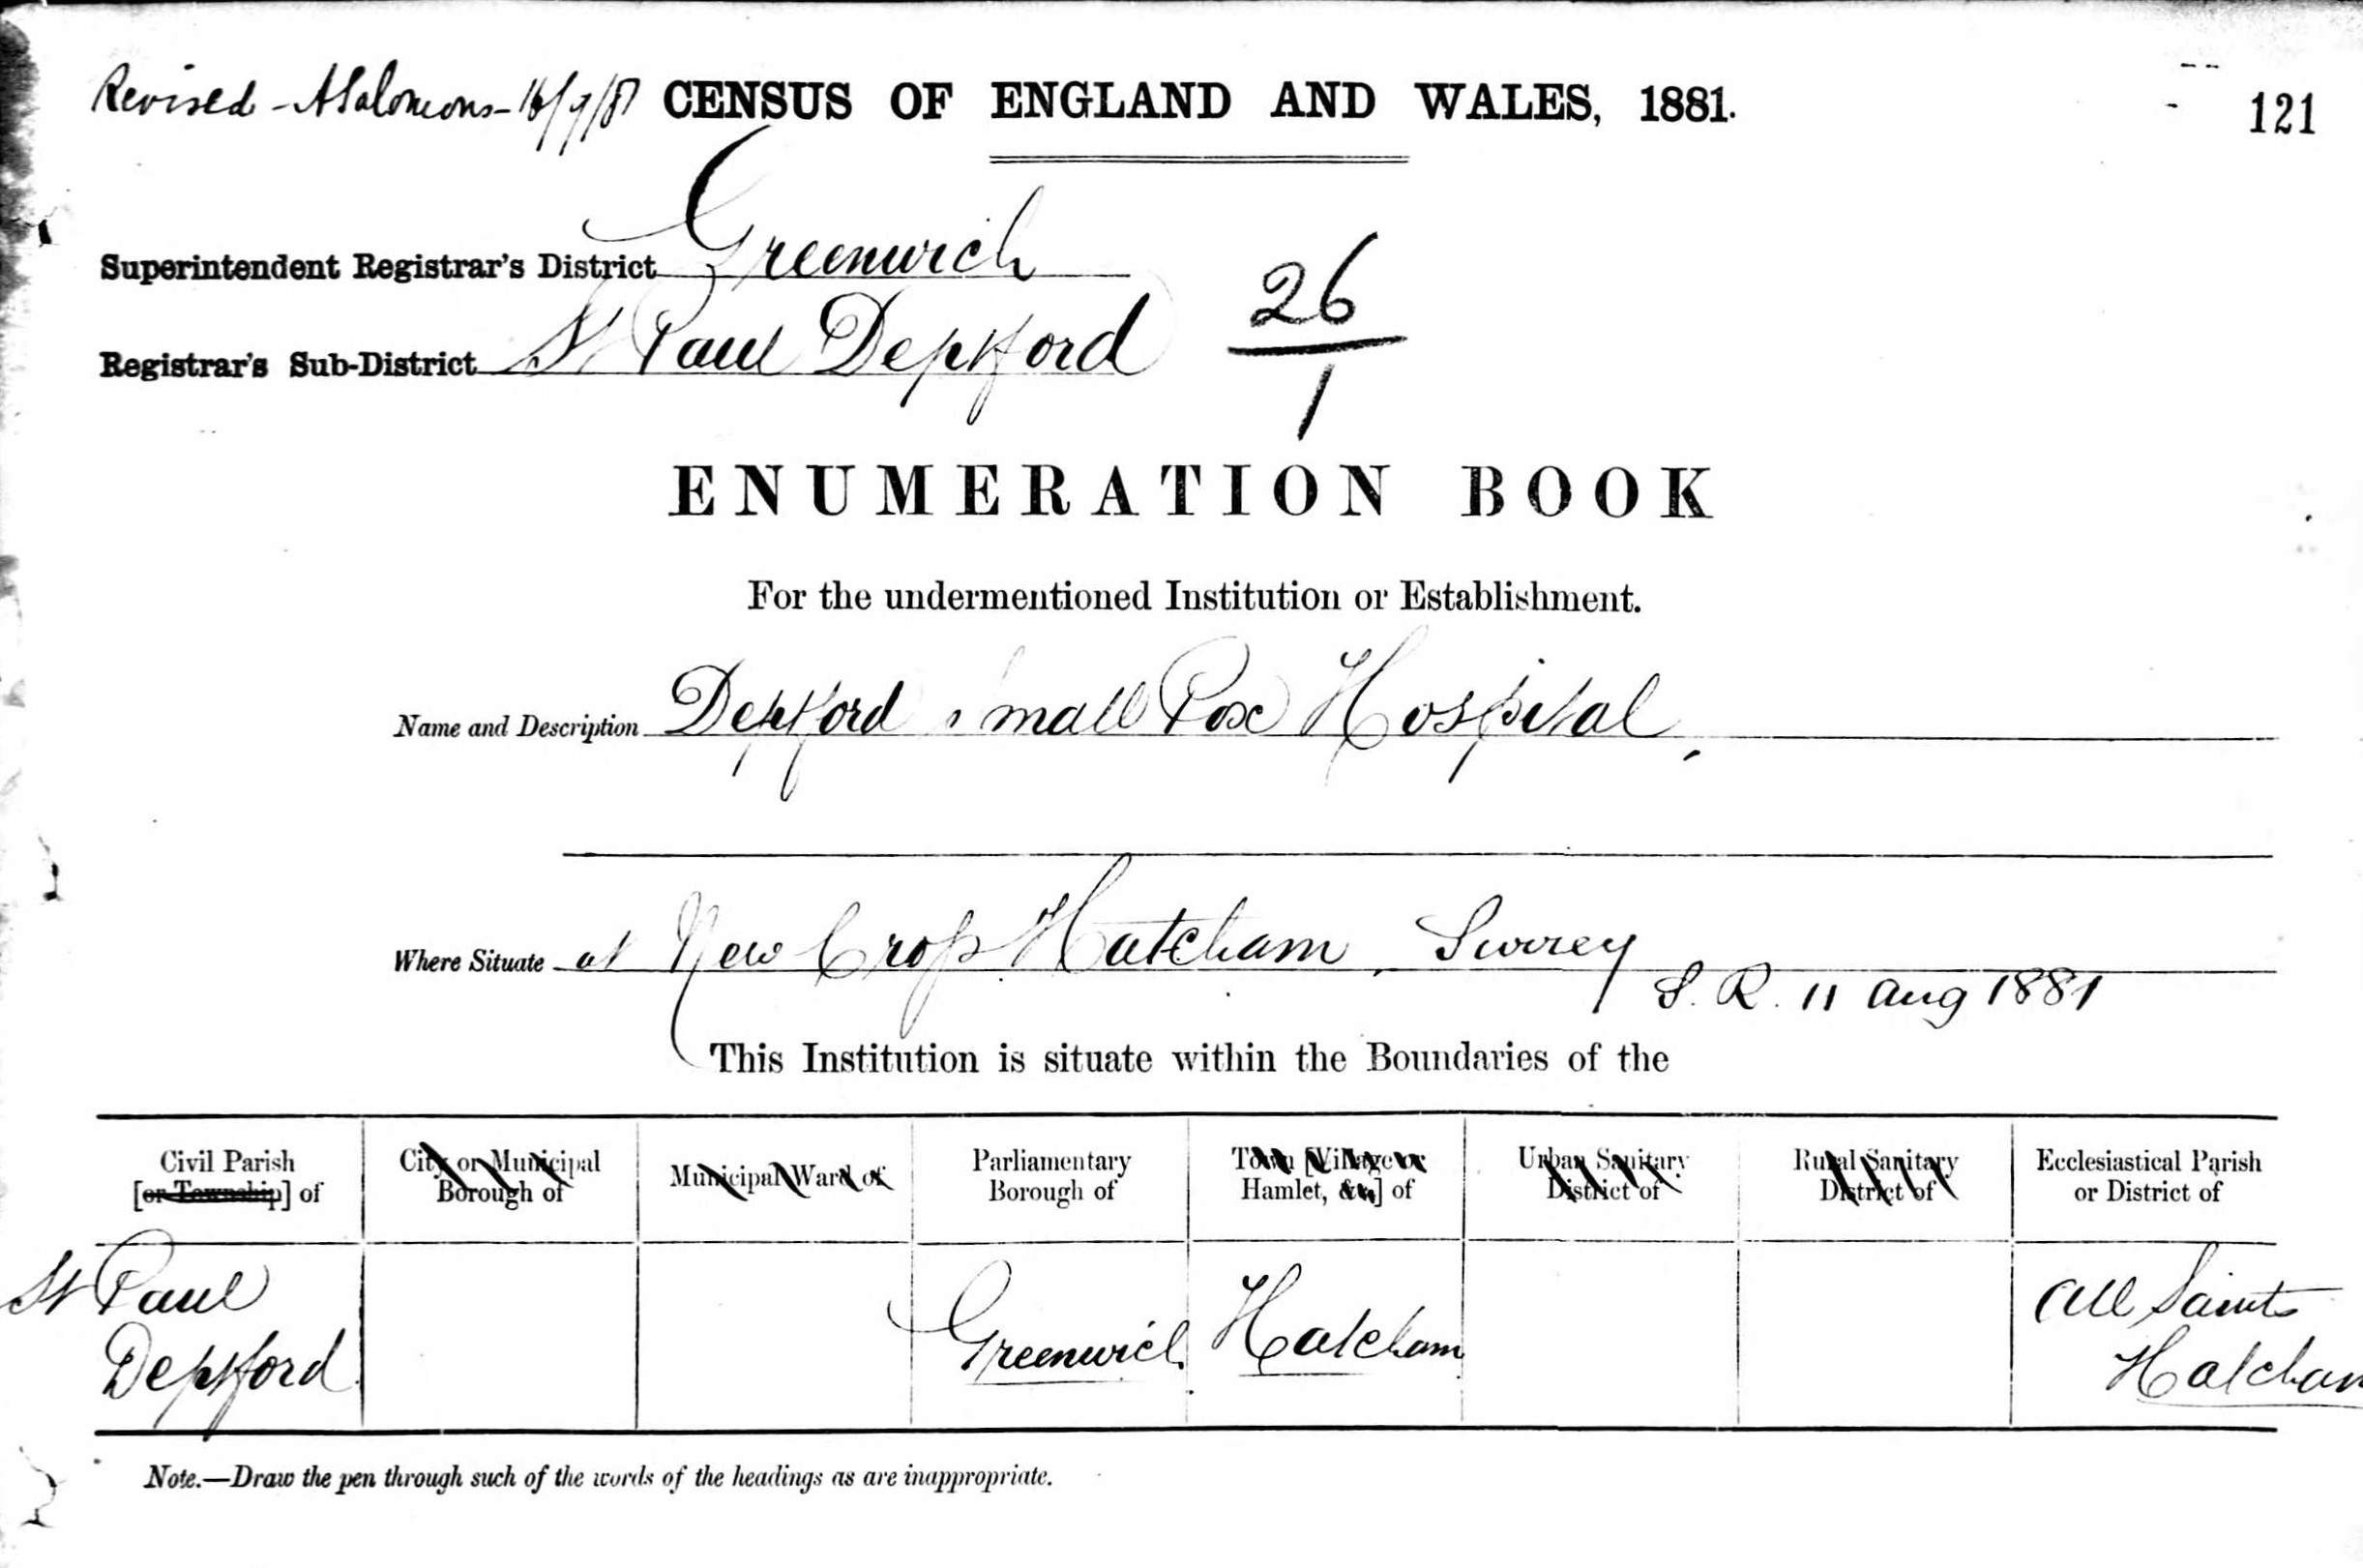 Revised - A Salomons - 16/9/81 CENSUS OF ENGLAND AND WALES, 1881. 121
Superintendent Registrar's District Greenwich
Registrar's Sub-District St Paul Deptford
26
1
ENUMERATION BOOK
For the undermentioned Institution or Establishment.
Name and Description Deptford Small Pox Hospital,
Where Situate at New Cross Hatcham, Surrey
S. R. 11 Aug 1881
This Institution is situate within the Boundaries of the
Civil Parish [or Township] of
City or Municipal Borough of
Municipal Ward of
Parliamentary Borough of
Town [Village or Hamlet, &c.] of
Urban Sanitary District of
Rural Sanitary District of
Ecclesiastical Parish or District of
St Paul
Deptford
Greenwich
Hatcham
All Saints
Hatcham
Note.—Draw the pen through such of the words of the headings as are inappropriate.